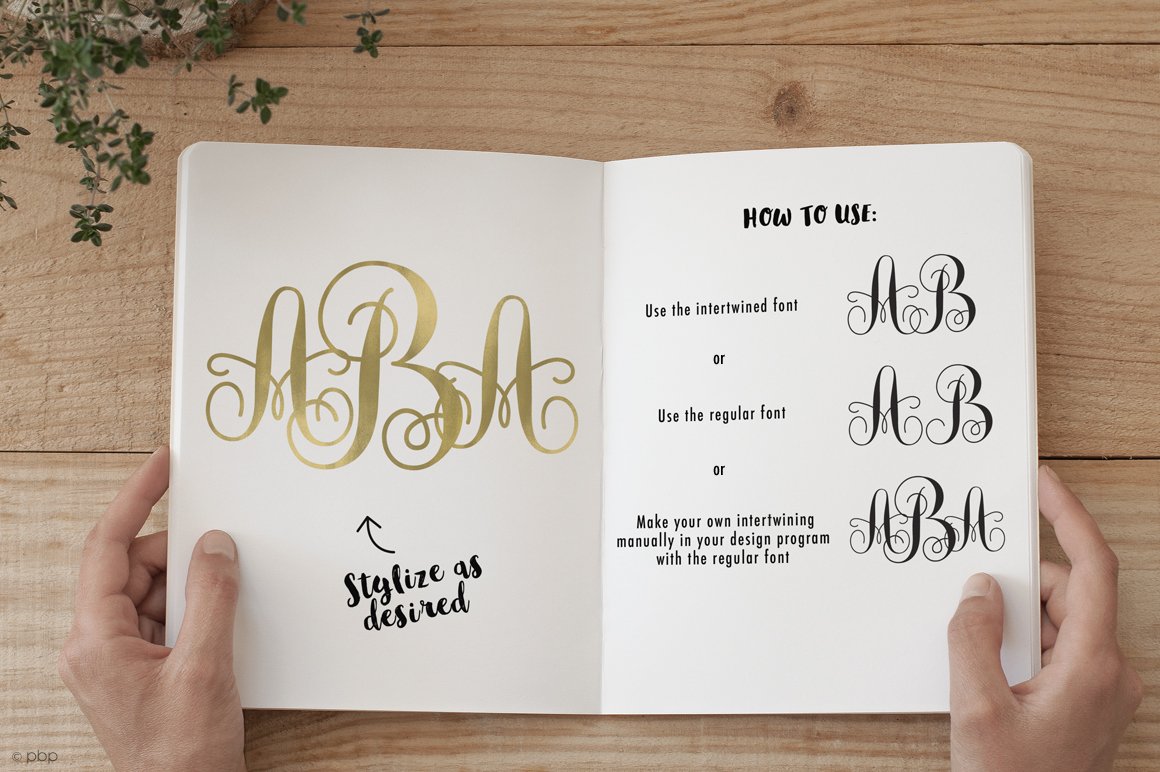 ABA
Stylize as
desired
HOW TO USE:
Use the intertwined font
AB
or
Use the regular font
A B
or
Make your own intertwining
manually in your design program
with the regular font
ABA
© pbp